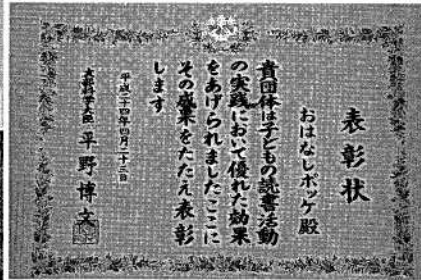 表彰状
おはなしポッケ殿
貴団体は子どもの読書活動
の実践において優れた効果
をあげられましたここに
その成果をたたえ表彰
します
平成二十四年四月二十三日
文部科学大臣 平野博文